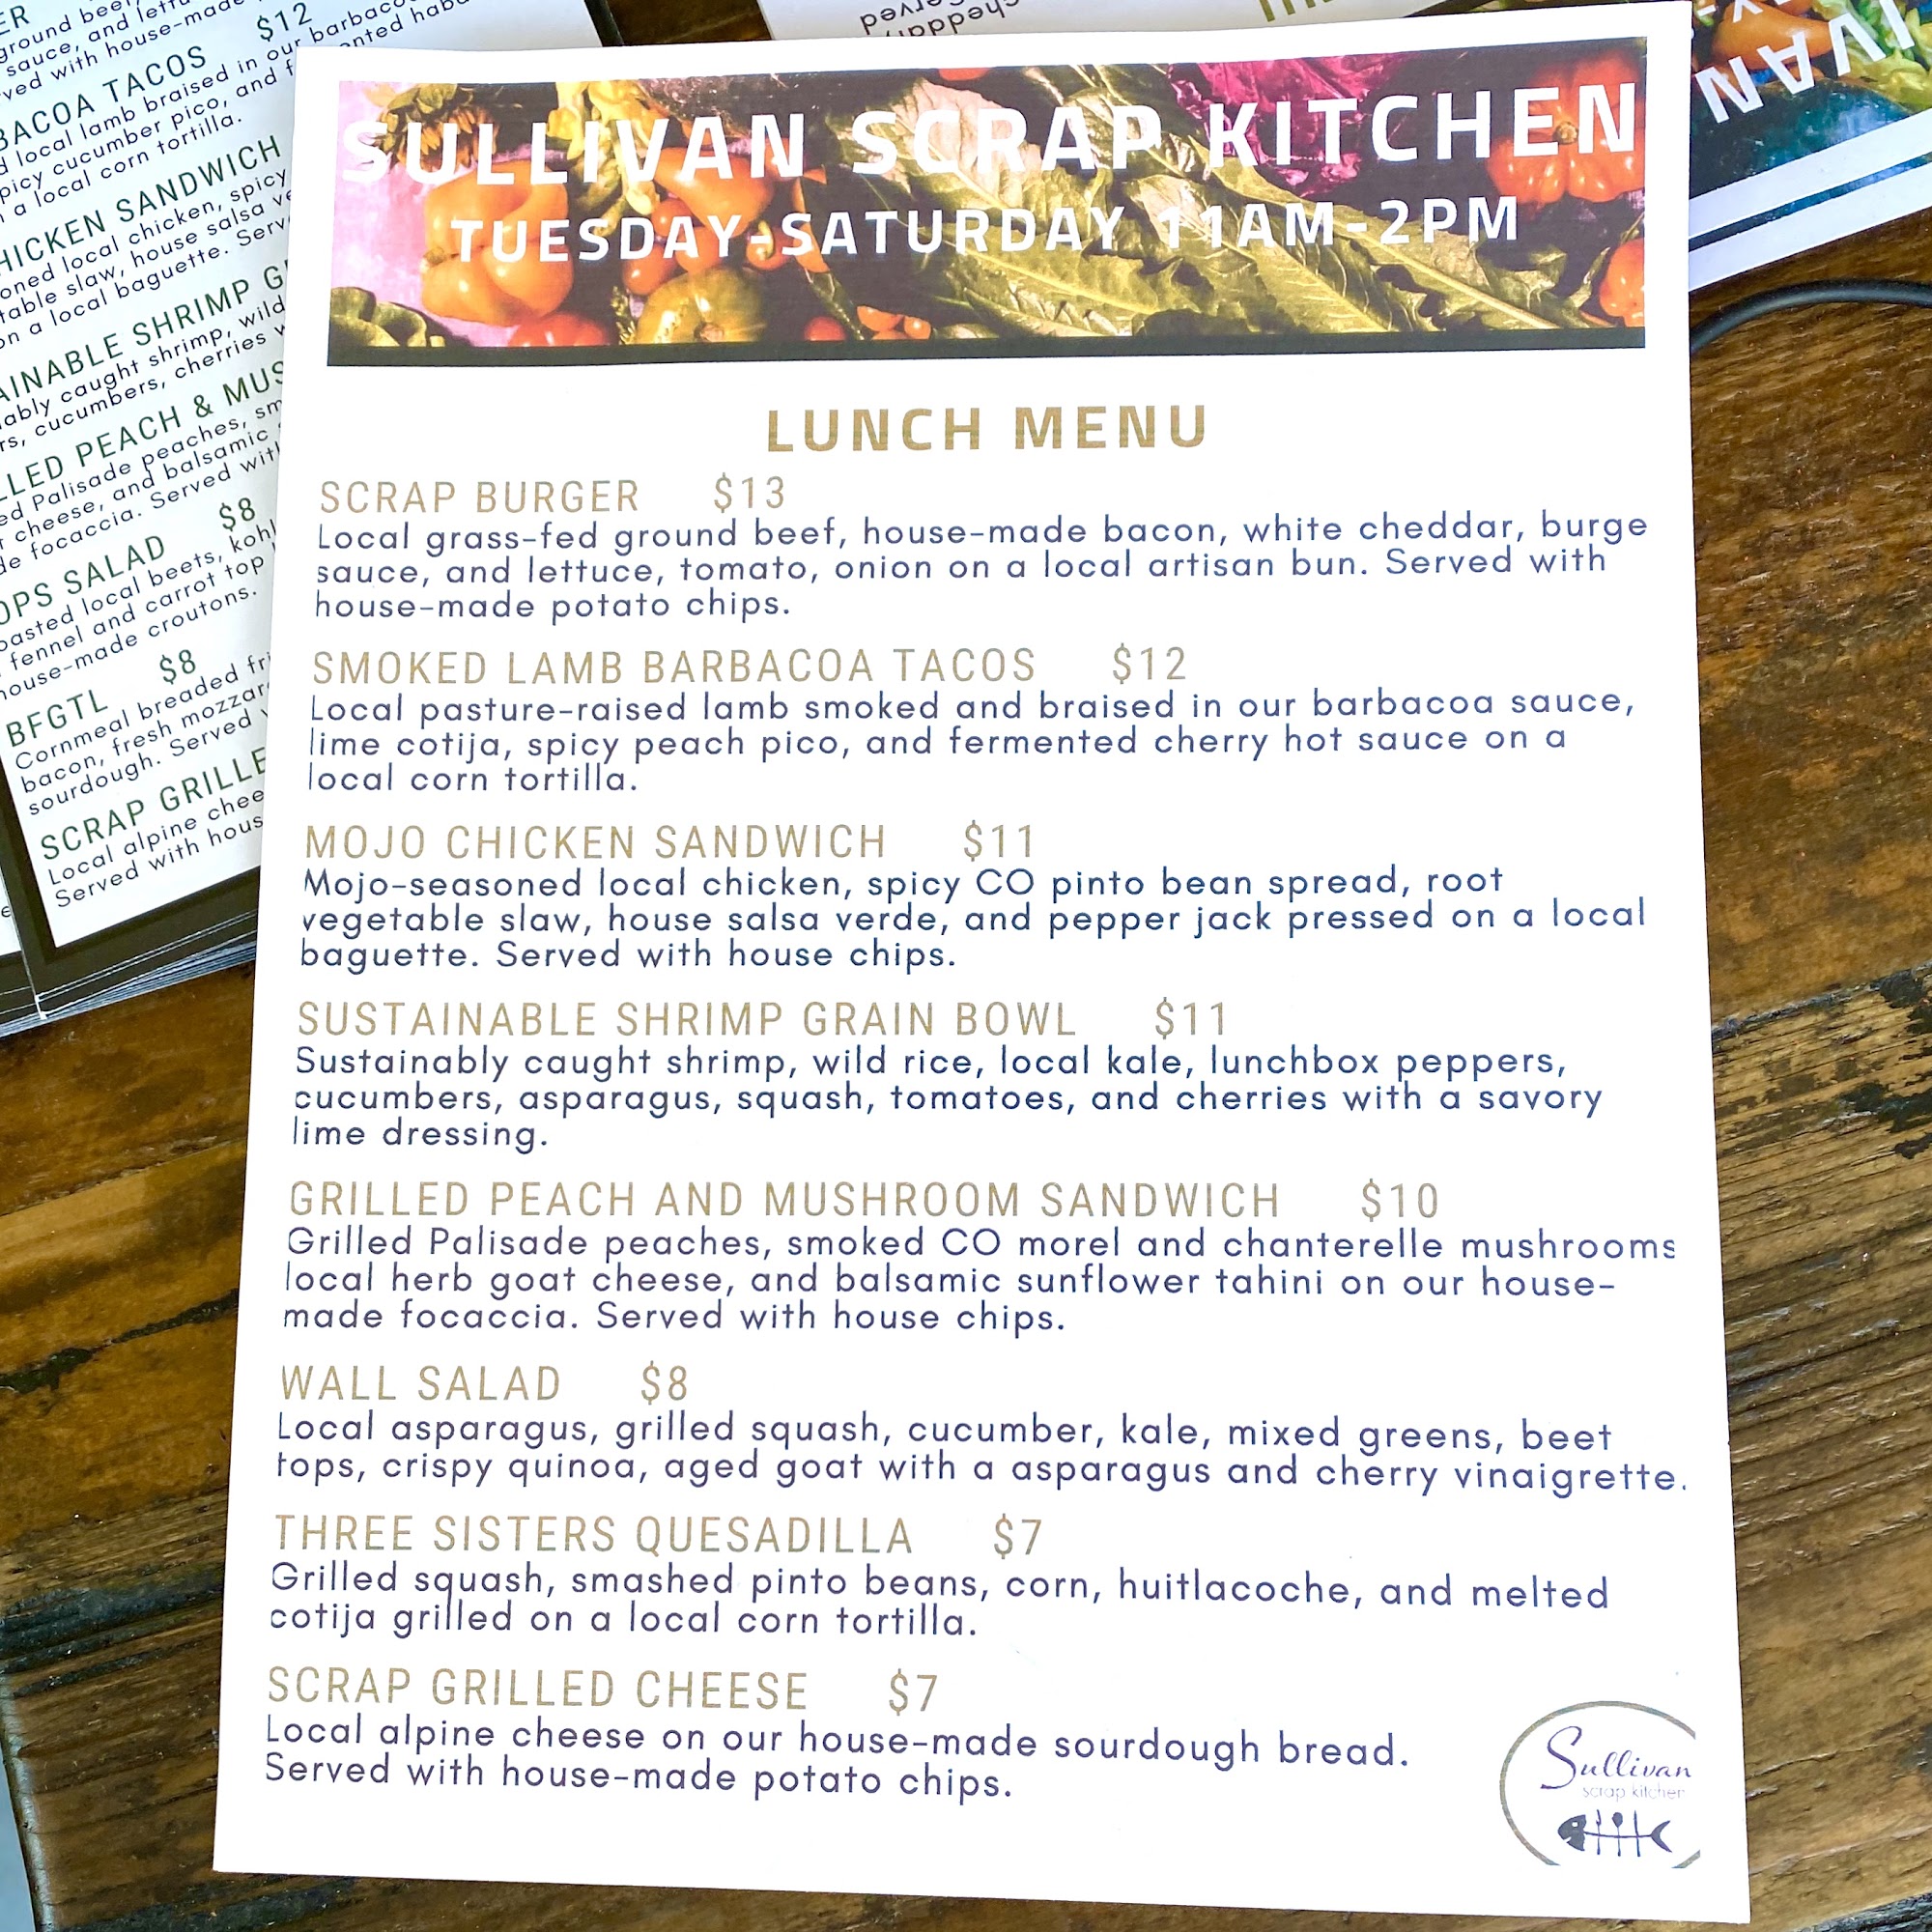 SULLIVAN SCRAP KITCHEN
TUESDAY-SATURDAY 11AM-2PM
LUNCH MENU
SCRAP BURGER $13
Local grass-fed ground beef, house-made bacon, white cheddar, burge
sauce, and lettuce, tomato, onion on a local artisan bun. Served with
house-made potato chips.
SMOKED LAMB BARBACOA TACOS $12
Local pasture-raised lamb smoked and braised in our barbacoa sauce,
lime cotija, spicy peach pico, and fermented cherry hot sauce on a
local corn tortilla.
MOJO CHICKEN SANDWICH $11
Mojo-seasoned local chicken, spicy CO pinto bean spread, root
vegetable slaw, house salsa verde, and pepper jack pressed on a local
baguette. Served with house chips.
SUSTAINABLE SHRIMP GRAIN BOWL $11
Sustainably caught shrimp, wild rice, local kale, lunchbox peppers,
cucumbers, asparagus, squash, tomatoes, and cherries with a savory
lime dressing.
GRILLED PEACH AND MUSHROOM SANDWICH $10
Grilled Palisade peaches, smoked CO morel and chanterelle mushrooms
local herb goat cheese, and balsamic sunflower tahini on our house-
made focaccia. Served with house chips.
WALL SALAD $8
Local asparagus, grilled squash, cucumber, kale, mixed greens, beet
tops, crispy quinoa, aged goat with a asparagus and cherry vinaigrette.
THREE SISTERS QUESADILLA $7
Grilled squash, smashed pinto beans, corn, huitlacoche, and melted
cotija grilled on a local corn tortilla.
SCRAP GRILLED CHEESE $7
Local alpine cheese on our house-made sourdough bread.
Served with house-made potato chips.
Sullivan
scrap kitchen
$12
sauce, and
ved with house-made
TACOS
local lamb braised in our barbaco
picy cucumber pico, and
a local corn tortilla.
SANDWICH
local chicken, spicy
slaw, house salsa
on a local baguette.
SHRIMP
caught shrimp, wild
cucumbers, cherries
PEACH &
Palisade peaches,
cheese, and balsamic
focaccia. Served
SALAD $8
local beets,
fennel and carrot top
house-made croutons.
BFGTL $8
Cornmeal breaded
bacon, fresh
sourdough. Served
SCRAP
Local alpine
Served with